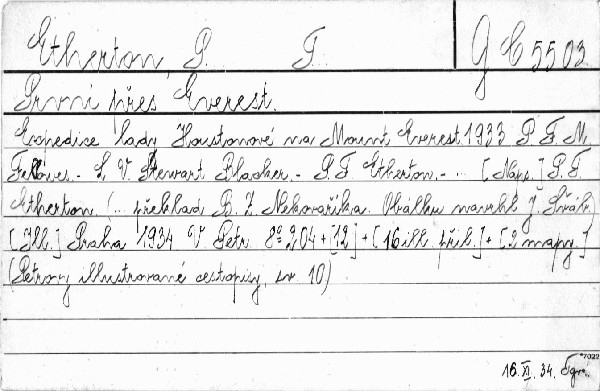 Etherton, P. T. G C 5503
První přes Everest.
Expedice lady Houstonové na Mount Everest 1933 P. F. M.
Fellowes. - L. V. Stewart Blacker. - P. T. Etherton. - ... [Naps.] P. T.
Etherton. (... překlad B. Z. Nekovařík a. Obálku navrhl J.
[Ill.] Praha 1934 V. Petr. 8° 204 + [12] + [16 ill. příl.] + [2 mapy.]
(Petrovy illustrované cestopisy, sv. 10)
*7022
16. XI. 34.